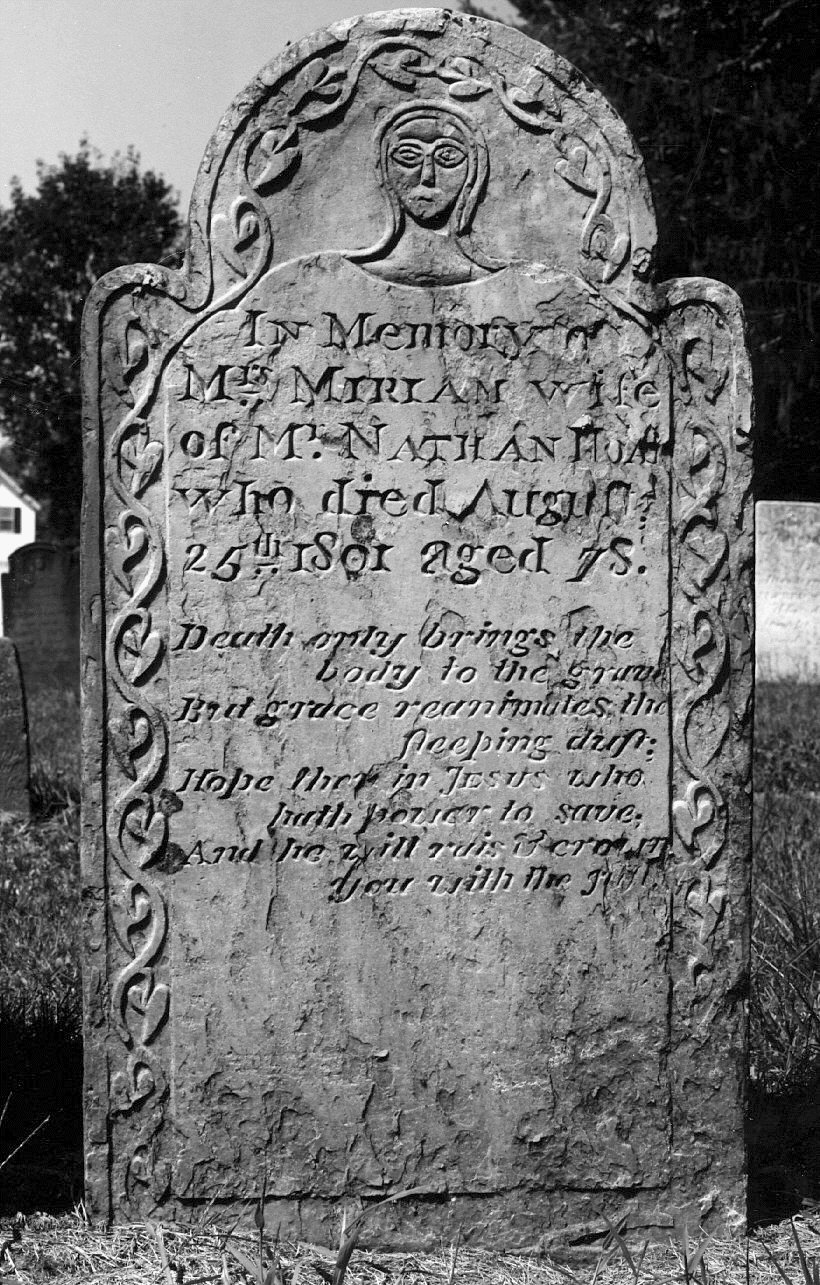 In Memory of
Mrs. MIRIAM wife
of Mr. NATHAN
who died August
25th. 1801 aged 78.
Death only brings the
body to the grave
But grace reanimates the
sleeping dust;
Hope then in JESUS who
hath power to save,
And he will rais & crown
you with the just.